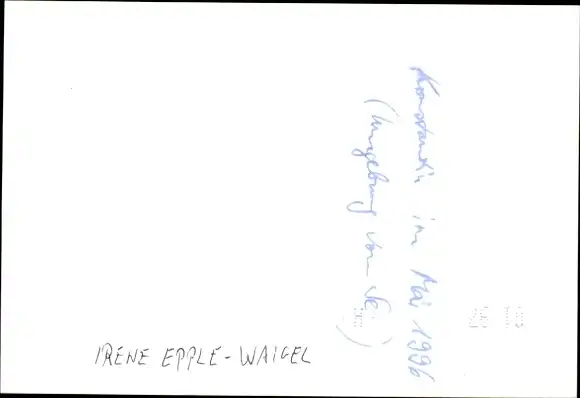 Konstantin im Mai 1996
(Umgebung von
IRENE EPPLE-WAIGEL